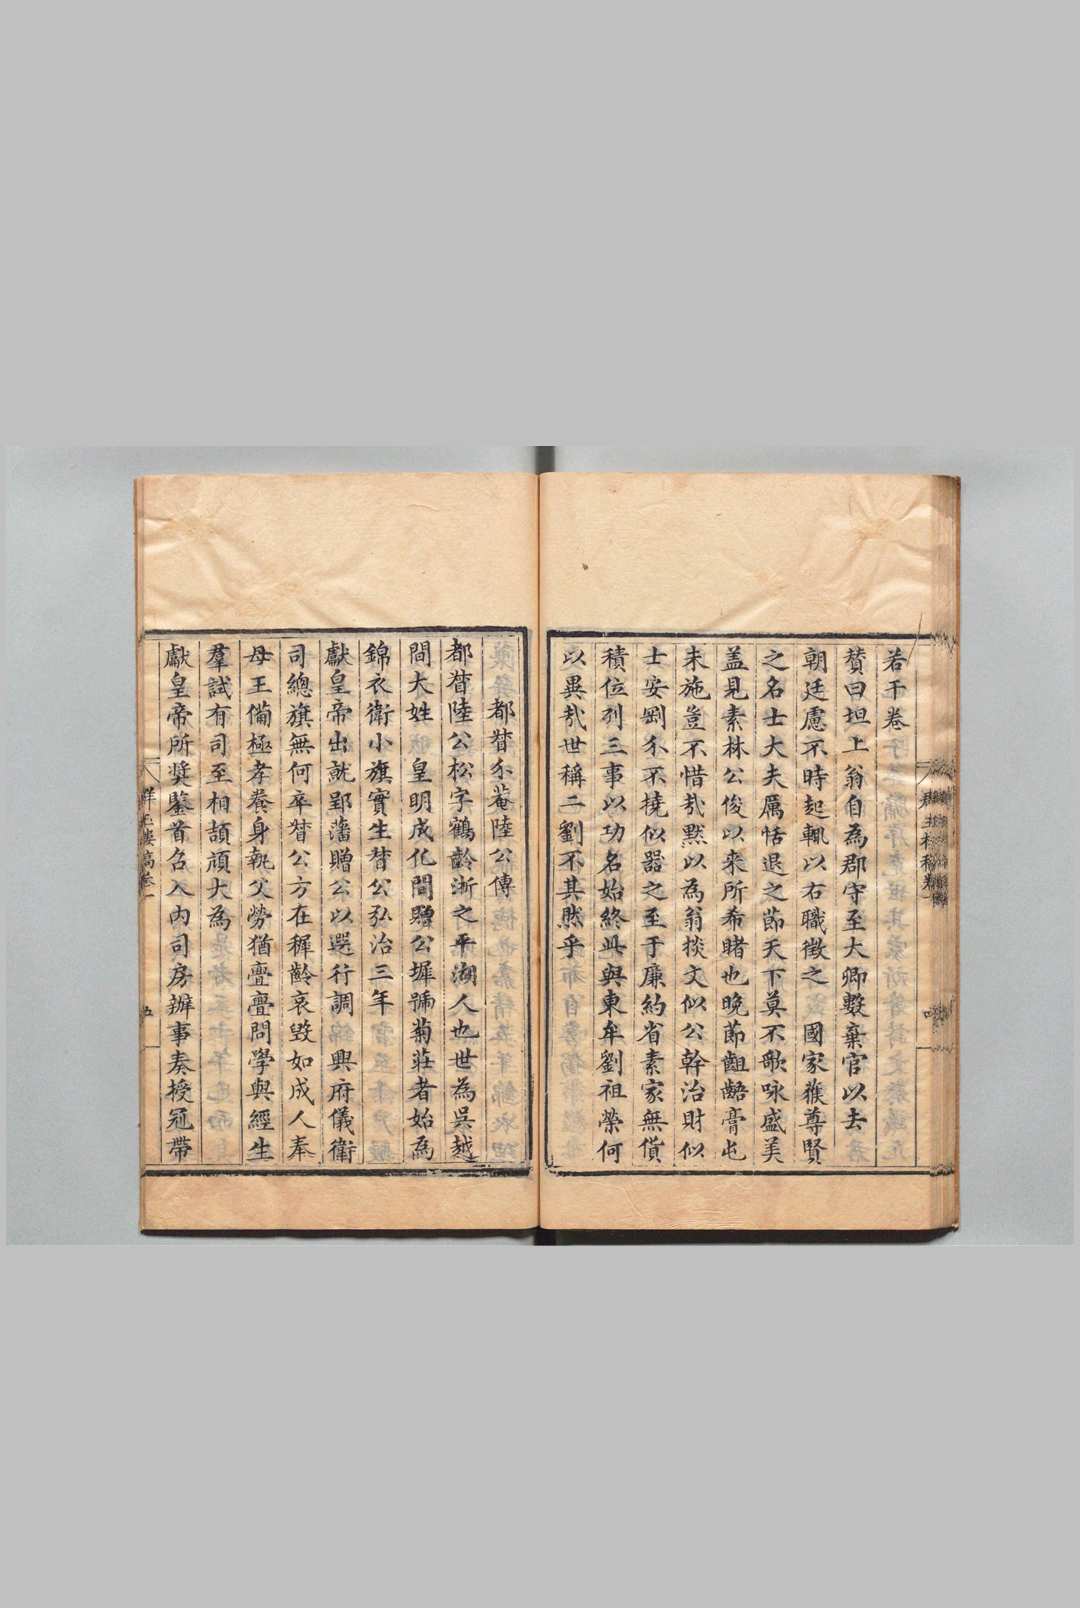 若干卷
贊曰坦上翁自為郡守至大卿數棄官以去
朝廷慮不時起輒以右職徵之 國家獲尊賢
之名士大夫厲恬退之節天下莫不歌咏盛美
盖見素林公俊以來所希睹也晚節齟齬膏屯
未施豈不惜哉黙以為翁掞文似公幹治財似
士安剛介不撓似器之至于廉約省素家無貲
積位列三事以功名始終此與東牟劉祖榮何
以異哉世稱二劉不其然乎
都督介菴陸公傳
都督陸公松字鶴齡浙之平湖人也世為吳越
間大姓 皇明成化間贈公墀號菊莊者始為
錦衣衛小旗實生督公弘治三年
獻皇帝出就郢藩贈公以選行調 興府儀衛
司總旗無何卒督公方在穉齡哀毀如成人奉
母王備極孝養身執父勞猶亹亹問學與經生
羣試有司至相頡頏大為
獻皇帝所奬鑒首召入內司房辦事奏授冠帶
五